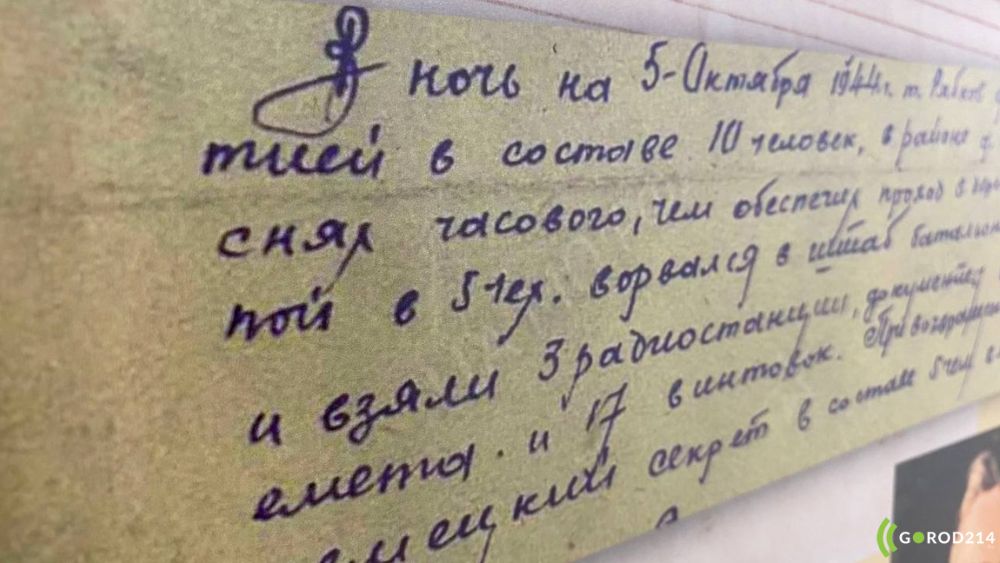 В ночь на 5-Октября 1944г. т. Рябков
тией в составе 10 человек, в районе
снял часового, чем обеспечил проход в
пой в 5 чел. ворвался в штаб батальон
и взяли 3 радиостанции, документы
емета. и 17 винтовок. При возвращени
емецкий секрет в составе 5 чел
GOROD214